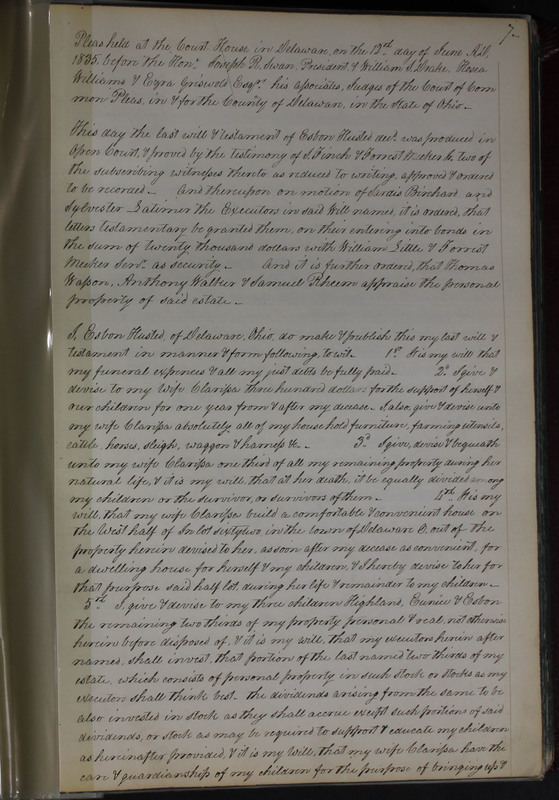 7-
Pleas held at the Court House in Delaware, on the 13th day of June A.D.
1835, before the Hon. Joseph R. Swan, President, & William S. Drake, Hosea
Williams & Ezra Griswold Esqrs. his associates, Judges of the Court of Com
mon Pleas, in & for the County of Delaware, in the State of Ohio.
This day the last will & testament of Esbon Husted decd. was produced in
Open Court, & proved by the testimony of S. Finch & Forrest Meeker Jr. two of
the subscribing witnesses thereto as reduced to writing, approved & ordered
to be recorded — And thereupon on motion of Jurdis Birchard and
Sylvester Latimer the Executors in said Will named, it is ordered, that
letters testamentary be granted them, on their entering into bonds in
the sum of twenty thousand dollars with William Little & Forrest
Meeker Senr. as security — And it is further ordered, that Thomas
Wasson, Anthony Walker & Samuel Rheem appraise the personal
property of said estate —
I, Esbon Husted, of Delaware, Ohio, do make & publish this my last will &
testament in manner & form following, to wit — 1st It is my will that
my funeral expences & all my just debts be fully paid — 2d I give &
devise to my Wife Clarissa three hundred dollars for the support of herself &
our children for one year from & after my decease — I also, give & devise unto
my wife Clarissa absolutely, all of my household furniture, farming utensils,
cattle, horses, sleigh, waggon & harness &c — 3d I give, devise & bequeath
unto my wife Clarissa one third of all my remaining property during her
natural life, & it is my will, that at her death, it be equally divided among
my children or the survivor, or survivors of them — 4th It is my
will, that my wife Clarissa build a comfortable & convenient house on
the West half of In lot sixty two, in the town of Delaware O. out of the
property herein devised to her, as soon after my decease as convenient, for
a dwelling house for herself & my children, & I hereby devise to her for
that purpose said half lot, during her life & remainder to my children —
5th I give & devise to my three children Highland, Eunice & Esbon
the remaining two thirds of my property personal & real, not otherwise
herein before disposed of, & it is my will, that my executors herein after
names, shall invest, that portion of the last named two thirds of my
estate, which consists of personal property in such stock or stocks as my
executors shall think best. the dividends arising from the same to be
also invested in stock as they shall accrue except such portions of said
dividends, or stock as may be required to support & educate my children
as hereinafter provided, & it is my Will, that my wife Clarissa have the
care & guardianship of my children for the purpose of bringing up &